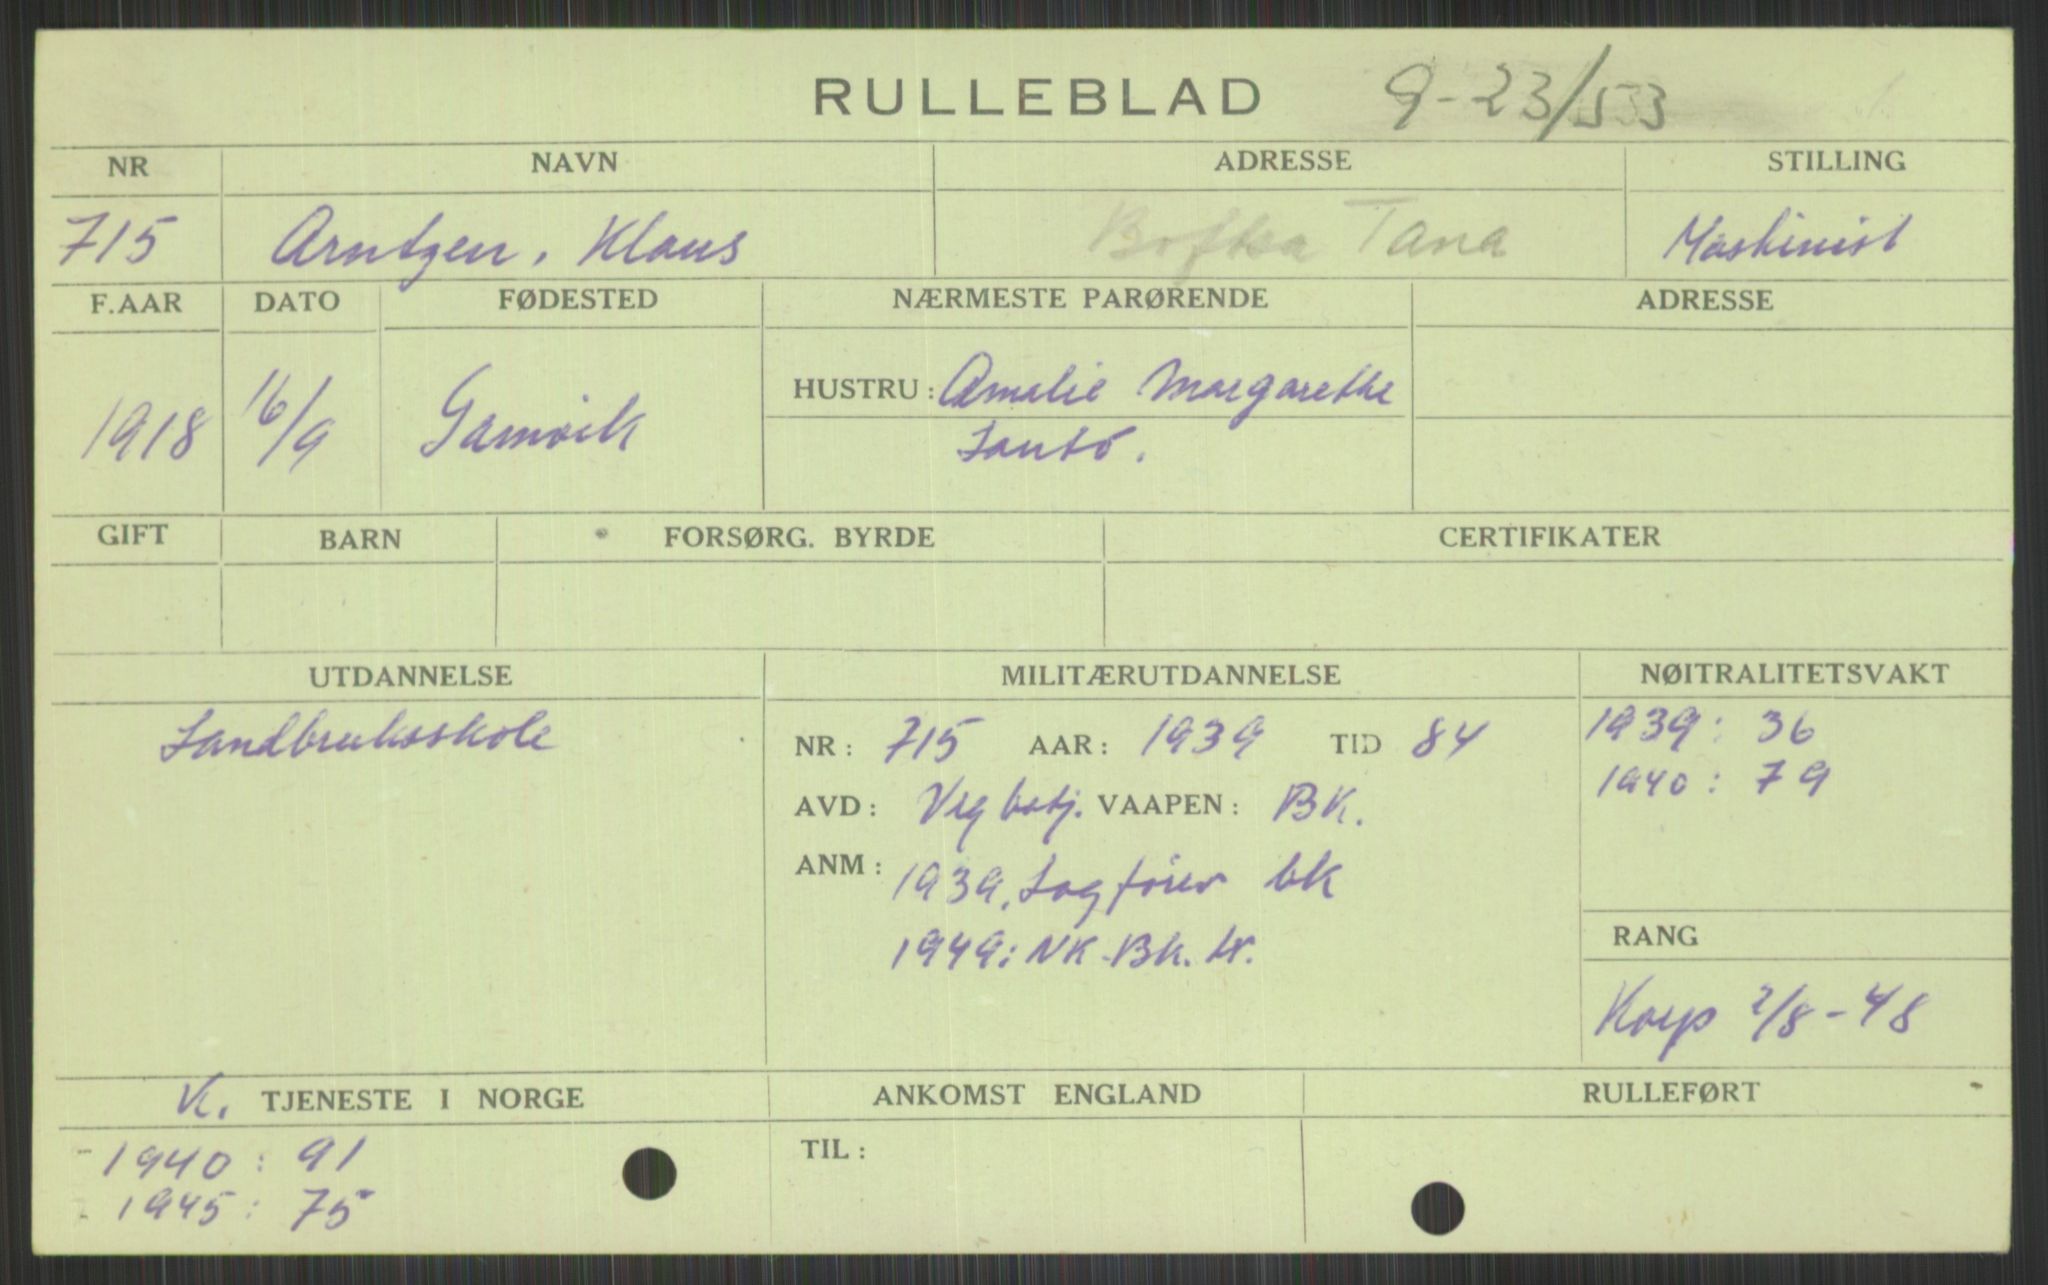 RULLEBLAD 9-23/553
NR NAVN ADRESSE STILLING
715 Arntzen, Klaus Boftsa Tana Maskinist
F.AAR DATO FØDESTED NÆRMESTE PARØRENDE ADRESSE
1918 16/9 Gamvik HUSTRU: Amalie Margarethe
GIFT BARN FORSØRG. BYRDE CERTIFIKATER
UTDANNELSE MILITÆRUTDANNELSE NØITRALITETSVAKT
Landbruksskole NR: 715 AAR: 1939 TID 84 1939: 36
1940: 79
AVD: VAAPEN: BK.
ANM: 1939, Lagfører bk
1949: NK. Bk. tr.
RANG
Korp 2/8-48
K. TJENESTE I NORGE ANKOMST ENGLAND RULLEFØRT
- 1940: 91 TIL:
- 1945: 75